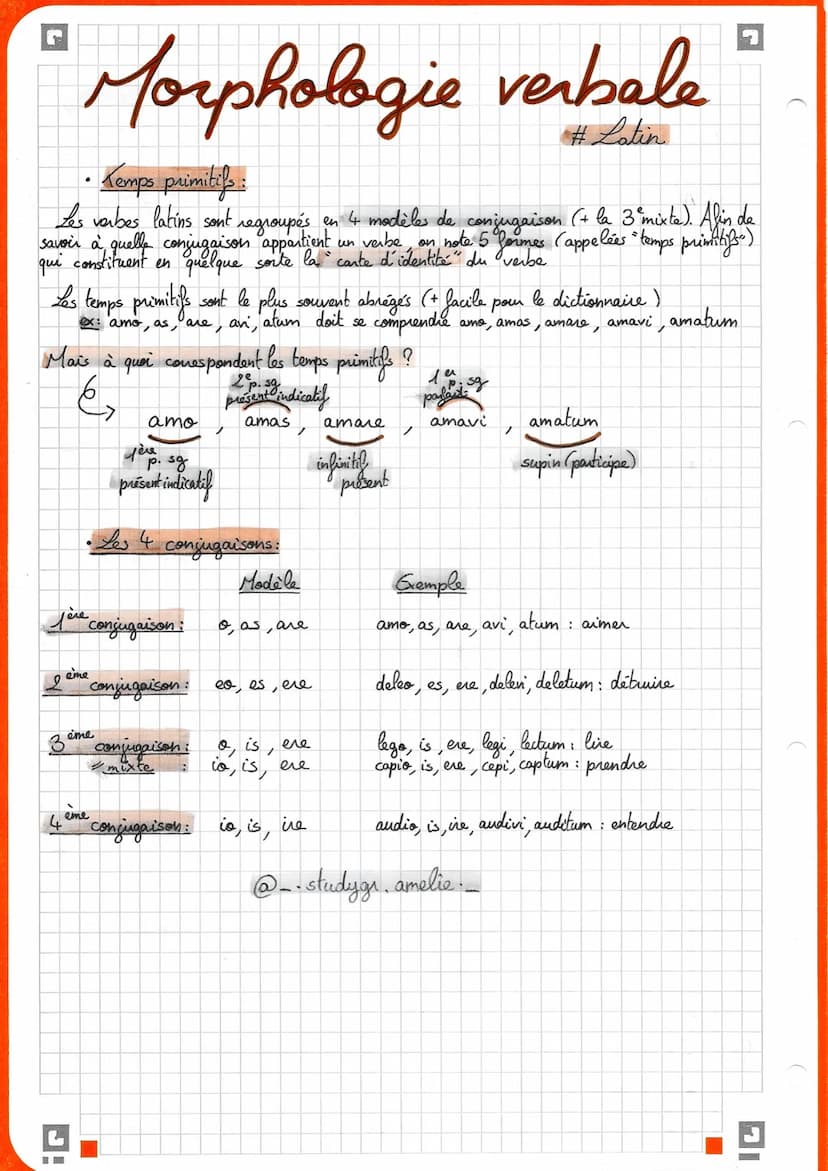 Morphologie verbale
# Latin
• Temps primitifs :
Les verbes latins sont regroupés en 4 modèles de conjugaison (+ la 3e mixte). Afin de
savoir à quelle conjugaison appartient un verbe, on note 5 formes (appelées "temps primitifs")
qui constituent en quelque sorte la "carte d'identité" du verbe
Les temps primitifs sont le plus souvent abrégés (+ facile pour le dictionnaire)
ex: amo, as, are, avi, atum doit se comprendre amo, amas, amare, amavi, amatum
Mais à quoi correspondent les temps primitifs ?
2e p. sg 1er p. sg
présent indicatif parfait
amo, amas, amare, amavi, amatum
1ère p. sg infinitif supin (participe)
présent indicatif présent
• Les 4 conjugaisons :
Modèle Exemple
1ère conjugaison : o, as, are amo, as, are, avi, atum : aimer
2ème conjugaison : eo, es, ere deleo, es, ere, delevi, deletum : détruire
3ème conjugaison : o, is, ere lego, is, ere, legi, lectum : lire
// mixte : io, is, ere capio, is, ere, cepi, captum : prendre
4ème conjugaison : io, is, ire audio, is, ire, audivi, auditum : entendre
@_.studygr.amelie._